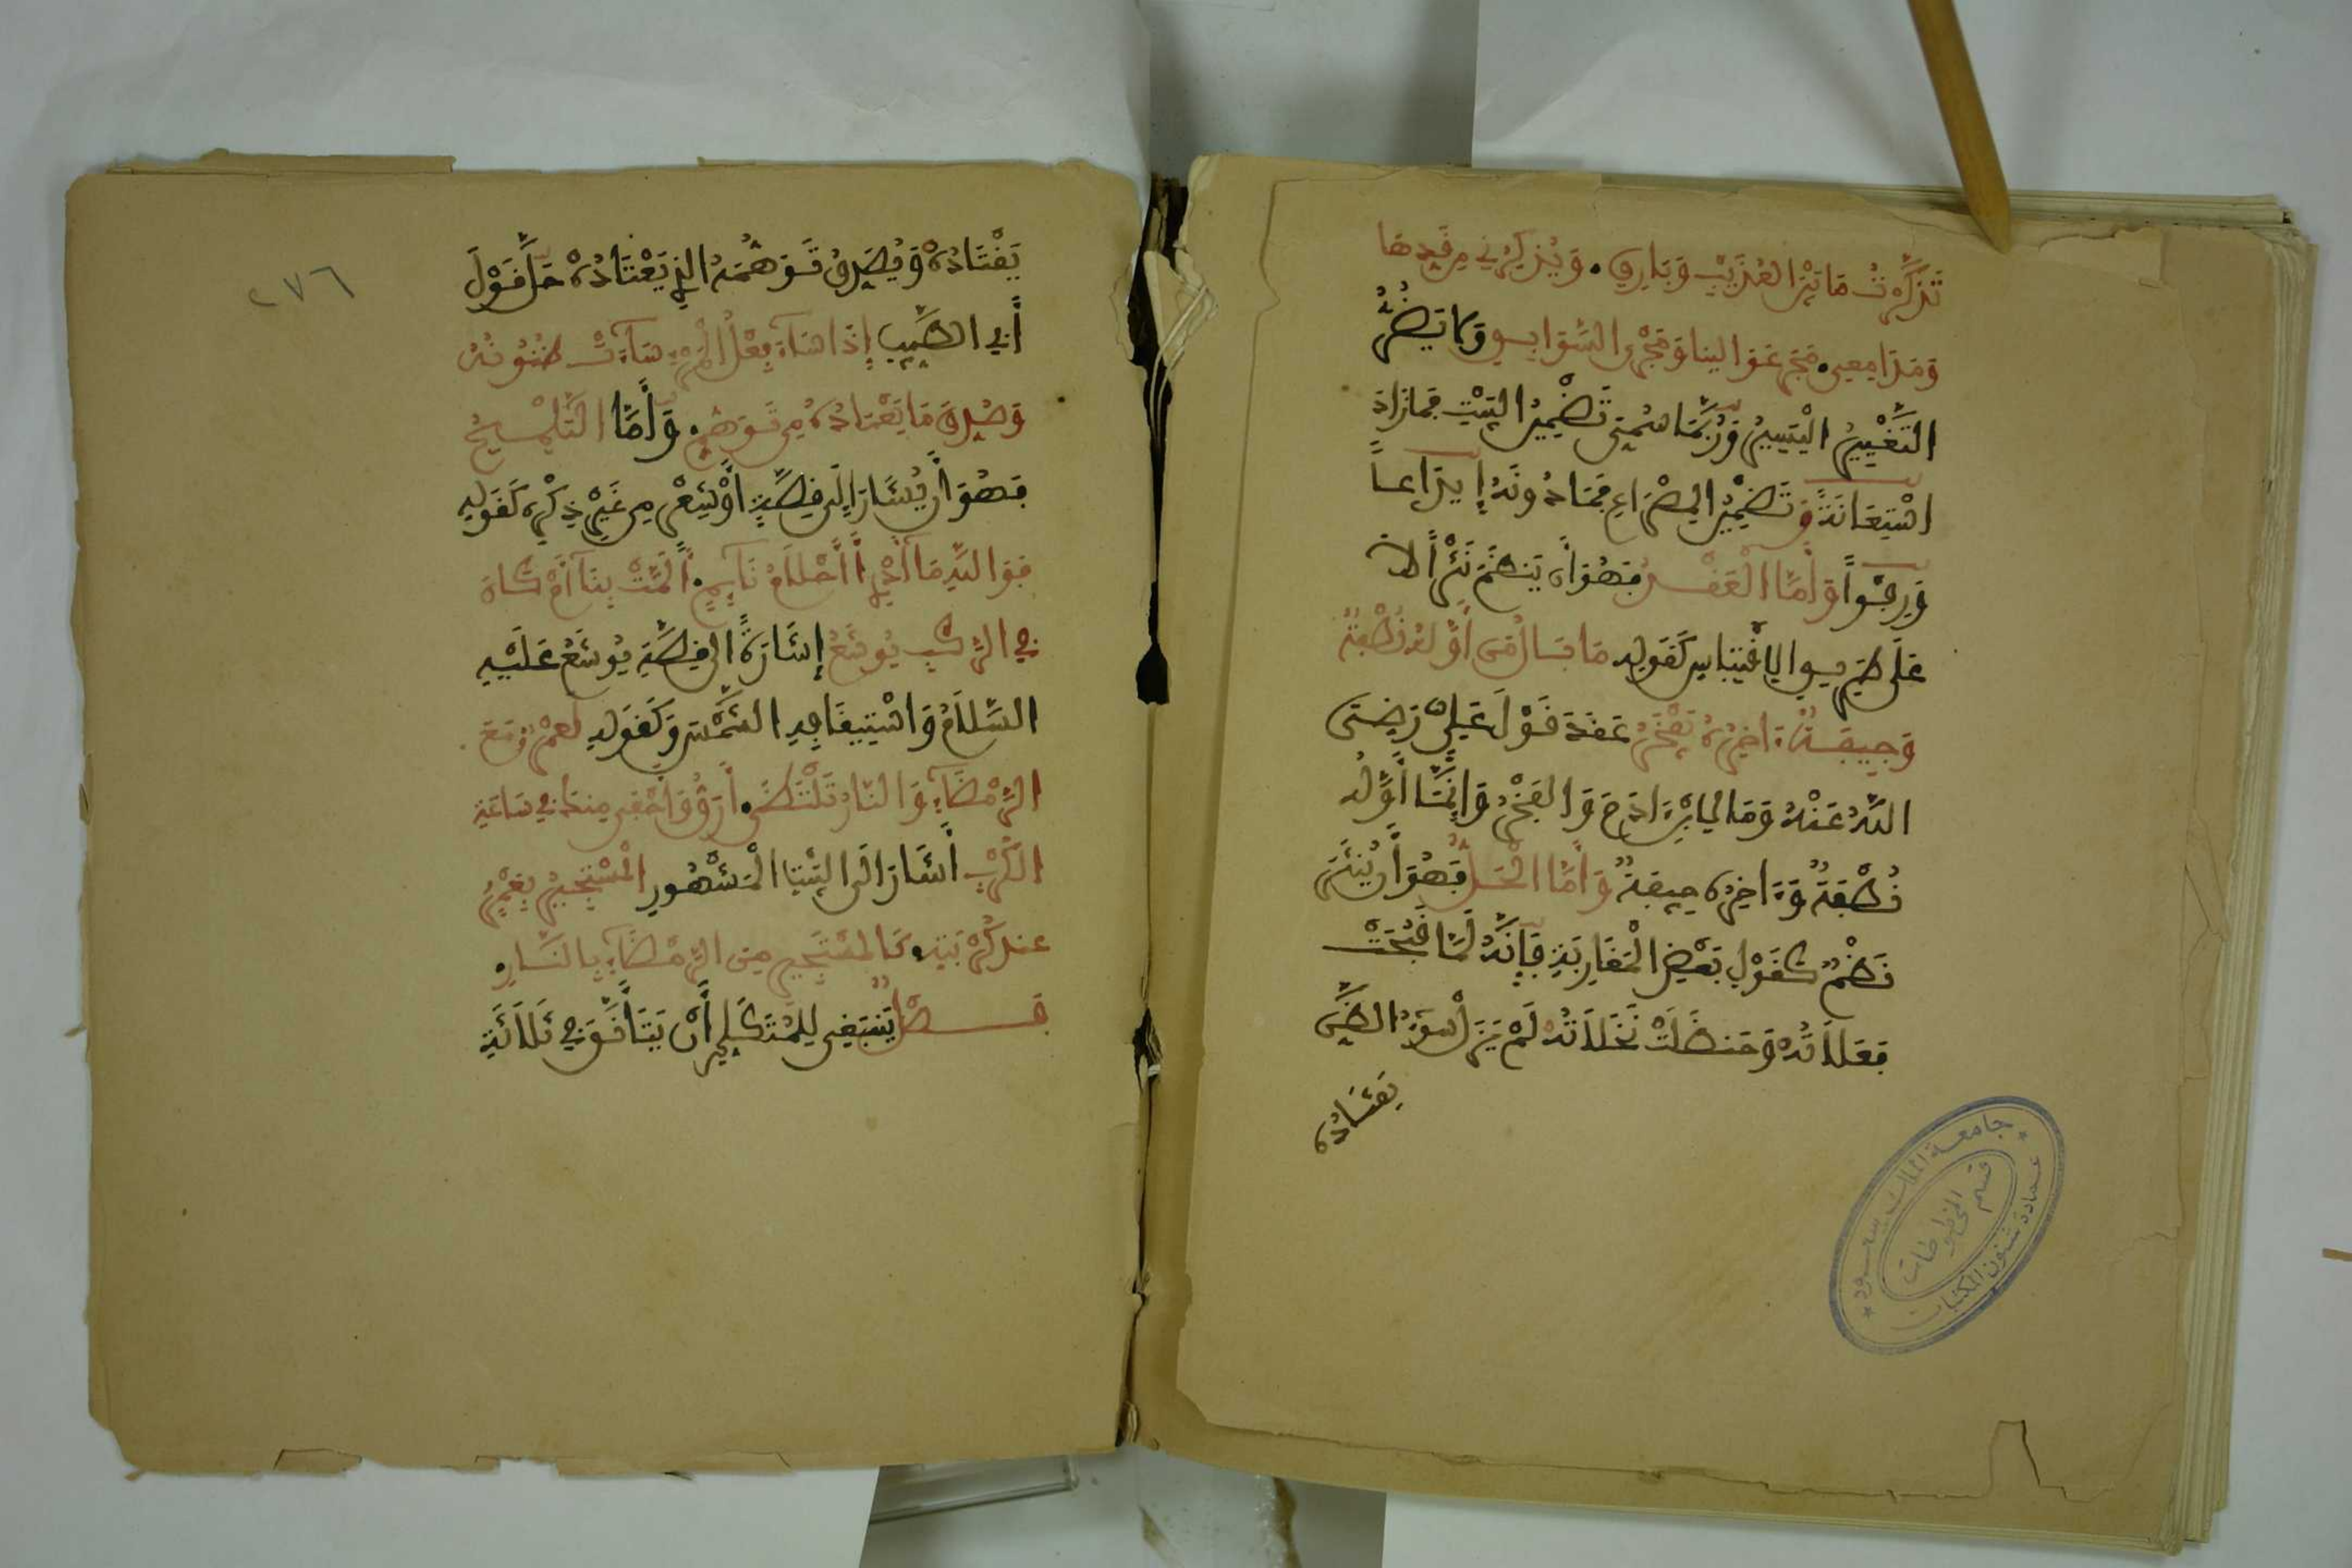 تَذَكَّرْتُ مَا بَيْنَ الْعُذَيْبِ وَبَارِقِ. وَيُذْكِرُنِي مِن قَدِهَا
وَمَدَامِعِي. مَجَرَّ عَوَالِينَا وَمَجْرَى السَّوَابِقِ وَلَا يَضُرُّ
التَّغْيِيرُ الْيَسِيرُ وَرُبَّمَا سُمِّيَ تَضْمِينُ الْبَيْتِ فَمَا زَادَ
اسْتِعَانَةً وَتَضْمِينُ الْمِصْرَاعِ فَمَا دُونَهُ إِيدَاعاً
وَرَفْواً وَأَمَّا الْعَقْدُ فَهُوَ أَن يُنظَمَ نَثْرٌ لَا
عَلَى طَرِيقِ الِاقْتِبَاسِ كَقَوْلِهِ مَا بَالُ مَنْ أَوَّلُهُ نُطْفَةٌ
وَجِيفَةٌ ءَاخِرُهُ يَفْخَرُ عَقَدَ قَوْلَ عَلِيٍّ رَضِيَ
اللهُ عَنْهُ وَمَا لِابْنِ ءَادَمَ وَالْفَخْرُ وَإِنَّمَا أَوَّلُهُ
نُطْفَةٌ وَءَاخِرُهُ جِيفَةٌ وَأَمَّا الْحَلُّ فَهُوَ أَن يُنثَرَ
نَظْمٌ كَقَوْلِ بَعْضِ الْمَغَارِبَةِ فَإِنَّهُ لَمَّا قَبُحَتْ
فَعَلَاتُهُ وَحَنظَلَتْ نَخَلَاتُهُ لَمْ يَزَلْ سُوءُ الظَّنِّ
يَقْتَادُهُ
جامعة الملك سعود
عمادة شئون المكتبات
قسم المخطوطات
٢٧٦
يَقْتَادُهُ وَيُصَدِّقُ تَوَهُّمَهُ الَّذِي يَعْتَادُهُ حَلَّ قَوْلَ
أَبِي الطَّيِّبِ إِذَا سَاءَ فِعْلُ الْمَرْءِ سَاءَتْ ظُنُونُهُ
وَصَدَّقَ مَا يَعْتَادُهُ مِن تَوَهُّمٍ. وَأَمَّا التَّلْمِيحُ
فَهُوَ أَن يُشَارَ إِلَى قِصَّةٍ أَوْ شِعْرٍ مِن غَيْرِ ذِكْرِهِ كَقَوْلِهِ
فَوَاللهِ مَا أَدْرِي أَأَحْلَامُ نَائِمٍ. أَلَمَّتْ بِنَا أَمْ كَانَ
فِي الرَّكْبِ يُوشَعُ إِشَارَةً إِلَى قِصَّةِ يُوشَعَ عَلَيْهِ
السَّلَامُ وَاسْتِيقَافِهِ الشَّمْسَ وَكَقَوْلِهِ لَعَمْرٌو مَعَ
الرَّمْضَاءِ وَالنَّارُ تَلْتَظِي. أَرَقُّ وَأَحْفَى مِنكَ فِي سَاعَةِ
الْكَرْبِ أَشَارَ إِلَى الْبَيْتِ الْمَشْهُورِ الْمُسْتَجِيرُ بِعَمْرٍو
عِندَ كُرْبَتِهِ. كَالْمُسْتَجِيرِ مِنَ الرَّمْضَاءِ بِالنَّارِ.
فَصْلٌ يَنبَغِي لِلْمُتَكَلِّمِ أَنْ يَتَأَنَّقَ فِي ثَلَاثَةِ